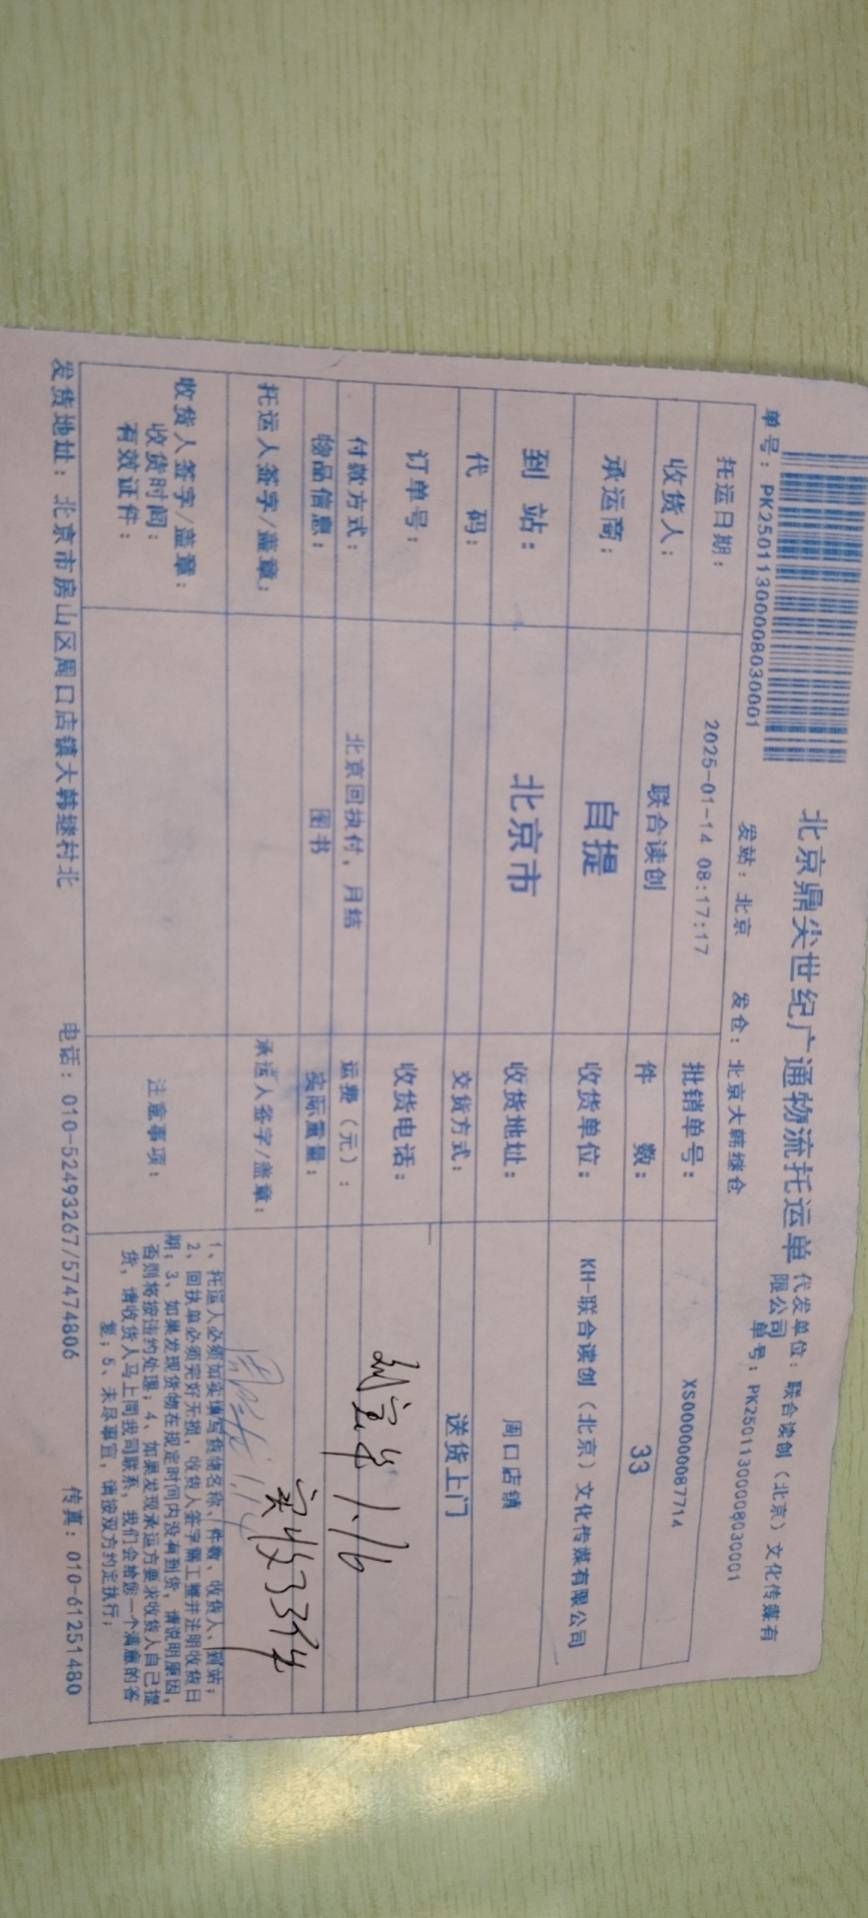 北京鼎尖世纪广通物流托运单
代发单位：联合读创（北京）文化传媒有限公司
单号：PK25011300008030001
发站：北京 发仓：北京大韩继仓
单号：PK25011300008030001
托运日期： 2025-01-14 08:17:17 批销单号： XS000000087714
收货人： 联合读创 件 数： 33
承运商： 自提 收货单位： KH-联合读创（北京）文化传媒有限公司
到 站： 北京市 收货地址： 周口店镇
代 码： 交货方式： 送货上门
订单号： 收货电话：
付款方式： 北京回执付，月结 运费（元）： 1.16
物品信息： 图书 实际重量：
托运人签字/盖章： 承运人签字/盖章： 实收33件
收货人签字/盖章：
收货时间：
有效证件：
注意事项：
1、托运人必须如实填写货物名称、件数、收货人、到站；
2、回执单必须完好无损，收货人签字需工整并注明收货日
期；3、如果发现货物在规定时间内没有到货，请说明原因，
否则将按违约处理；4、如果发现承运方要求收货人自己提
货，请收货人马上同我司联系，我们会给您一个满意的答
复；5、未尽事宜，请按双方约定执行；
发货地址：北京市房山区周口店镇大韩继村北 电话：010-52493267/57474806 传真：010-61251480